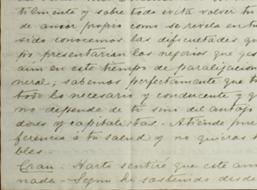 tiemente y sobre todo evita volver tu
de amor propio como se revela en tu
sido conocemos las dificultades que
pos presentarian los negocios que ges
aim en este tiempo de paralizacion
neral; sabemos perfectamente que t
todo lo necesario y conducente y q
no depende de ti sino del antojo
dores y capitalistas. Atiende pre
ferencia á tu salud y no quieras s
bles.
Cran. Harto sentiré que este am
nada. Segun he sostenido desde